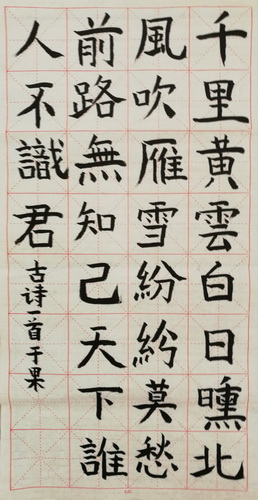 千里黄雲白日曛北
風吹雁雪紛紛莫愁
前路無知己天下誰
人不識君
古诗一首于果